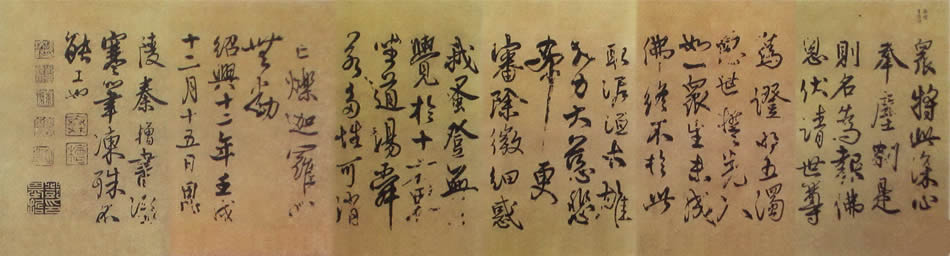 眾將此深心
奉塵剎是
則名為報佛
恩伏請世尊
為證明五濁
惡世誓先入
如一眾生未成
佛終不於此
取泥洹大雄
大力大慈悲
希更
審除微細惑
我蚤登無上
覺於十方界
坐道場舜
若多性可消
亡爍迦羅心
無小動
紹興十二年壬戌
十二月十五日
陵秦檜書
寒筆凍殊不
能工也